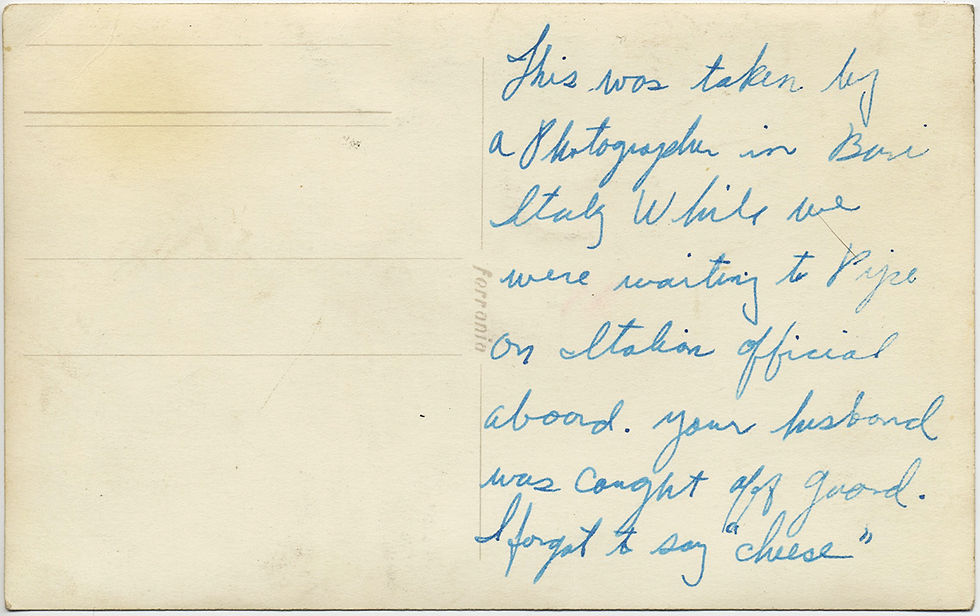 This was taken by
a Photographer in Bari
Italy While we
were waiting to Pipe
an Italian official
aboard. your husband
was caught off guard.
I forgot to say "cheese"
ferrania